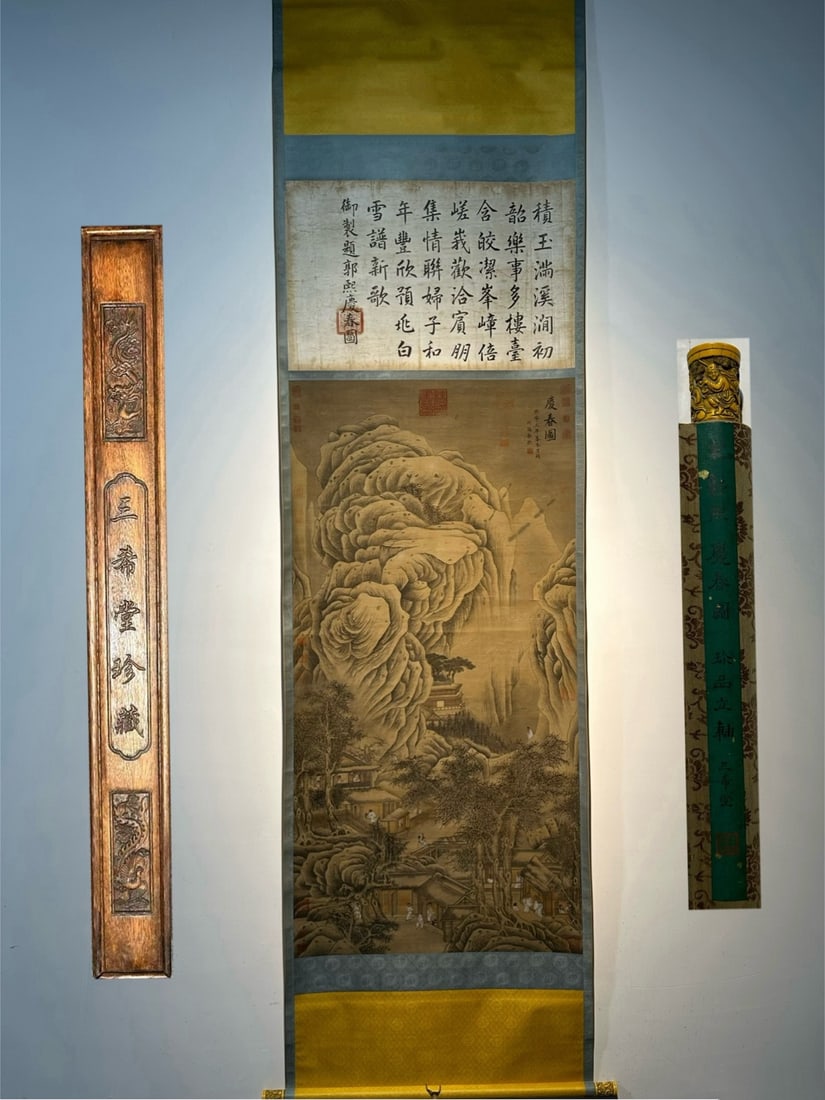 三希堂珍藏
積玉滿溪澗初
韶樂事多樓臺
含皎潔峯嶂倍
嵯峩歡洽賓朋
集情聯婦子和
年豐欣預兆白
雪譜新歌
御製題郭熙慶春圖
慶春圖
春圖 珍品立軸 三希堂